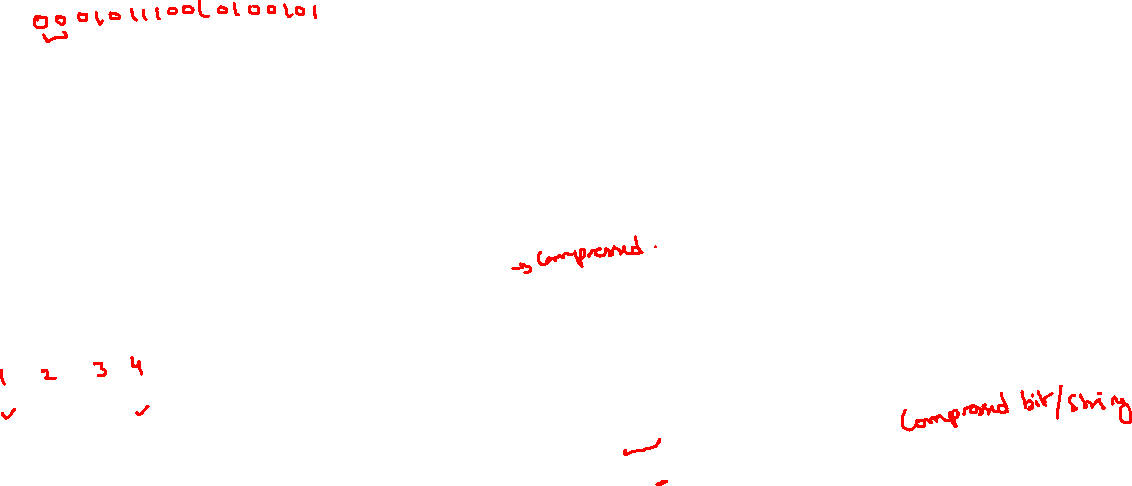 00010111001010010 1
→ Compressed.
1 2 3 4
Compressed bit/string